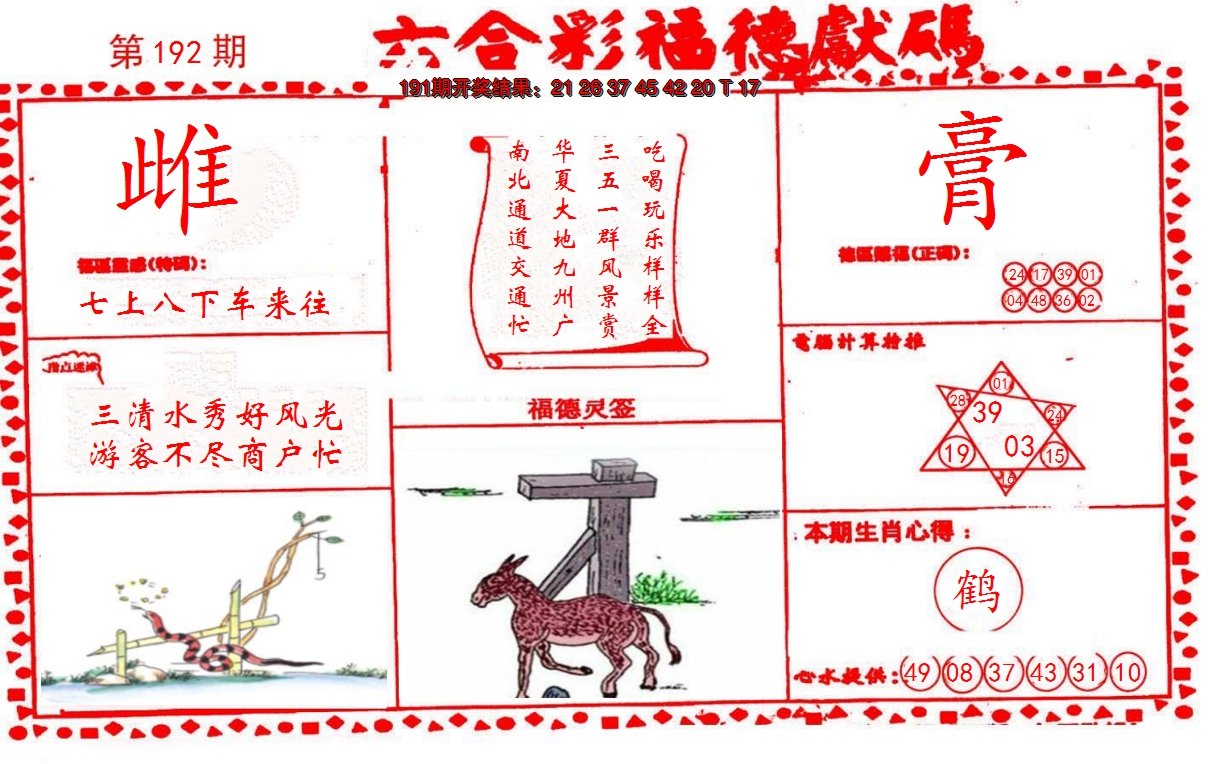 第192期
六合彩福德獻碼
191期开奖结果：21 26 37 45 42 20 T 17
雌
福區靈感(特碼)：
七上八下车来往
指点迷津
三清水秀好风光
游客不尽商户忙
吃喝玩乐样样全
三五一群风景赏
华夏大地九州广
南北通道交通忙
福德灵签
膏
德區賜福(正碼)：
24 17 39 01
04 48 36 02
電腦計算推
01
28 39 24
19 03 15
16
本期生肖心得：
鹤
心水提供：49 08 37 43 31 10